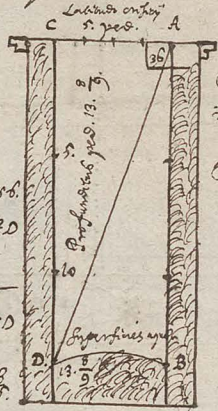 Latitudo
C 5. ped. A
36
Profunditas ped. 13. 8/9.
5.
10
Superficies aquæ
D B
13. 8/9